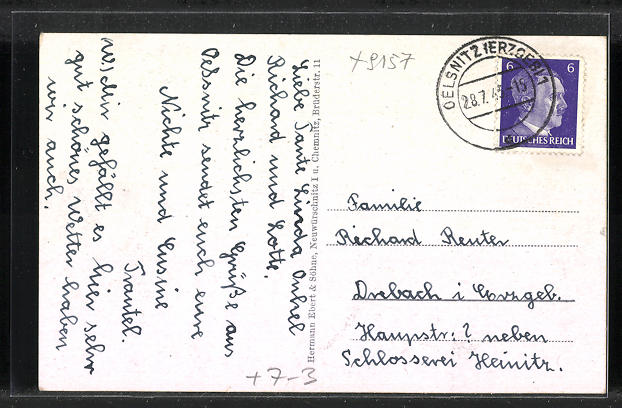 Liebe Tante Linda Onkel
Richard und Lotte.
Die herzlichsten Grüße aus
Oelsnitz sendet euch eure
Nichte und Cusine
Trautel.
Mir gefällt es hier sehr
gut schönes Wetter haben
wir auch.
Hermann Ebert & Söhne, Neuwürschnitz I u. Chemnitz, Brüderstr. 11
+9157
OELSNITZ (ERZGEB) 1
28.7.4
6 6
DEUTSCHES REICH
Familie
Richard Reuter
Drebach i Erzgeb.
Haupstr: ? neben
Schlosserei Heinitz.
+7-3